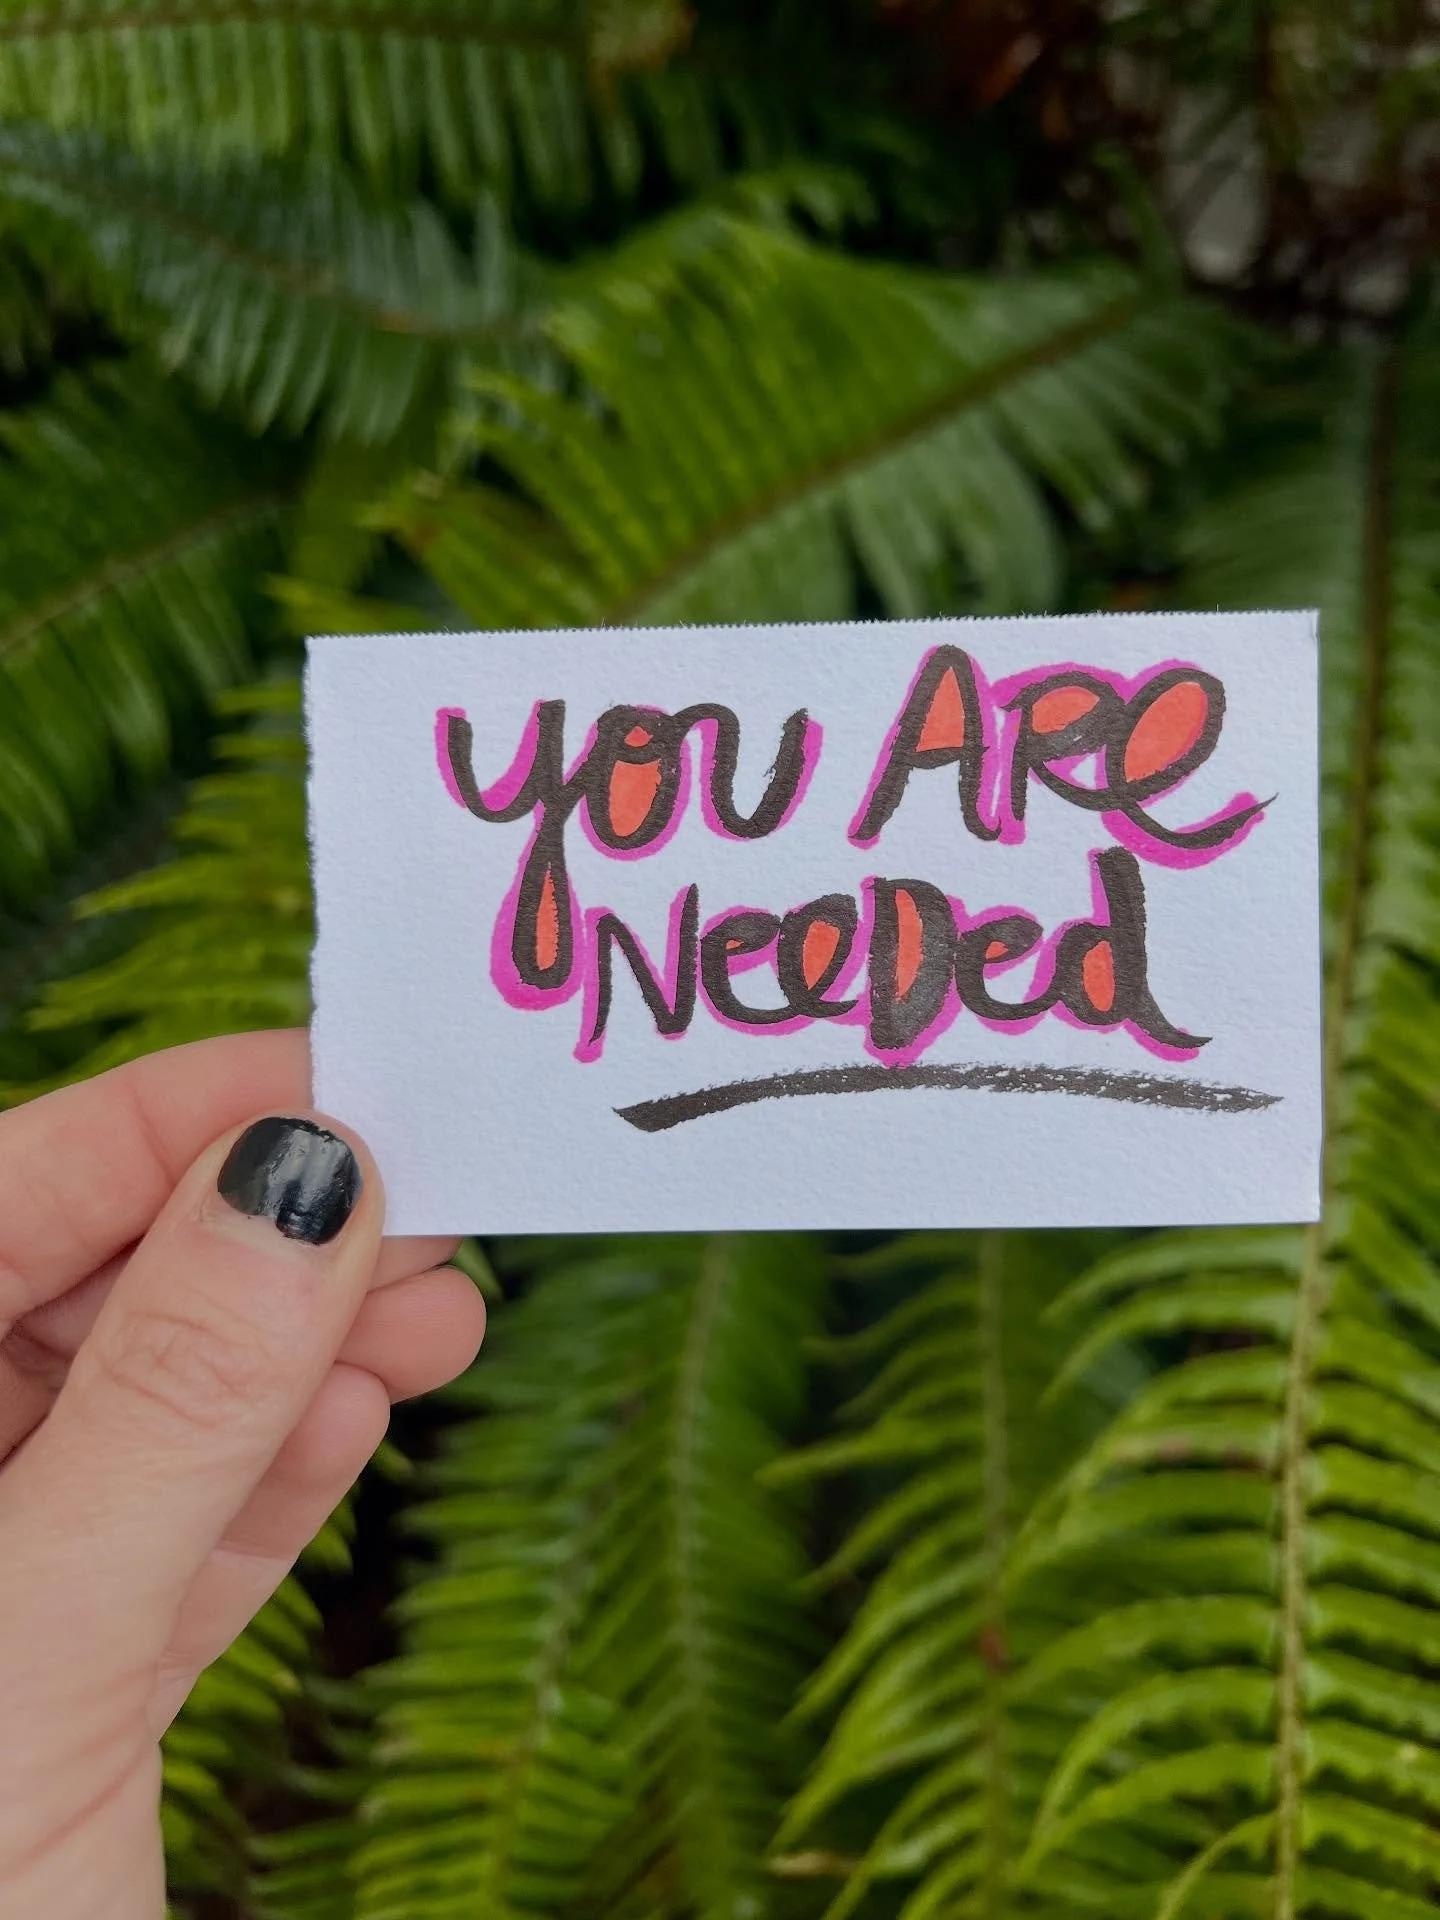 you ARe
NeeDed